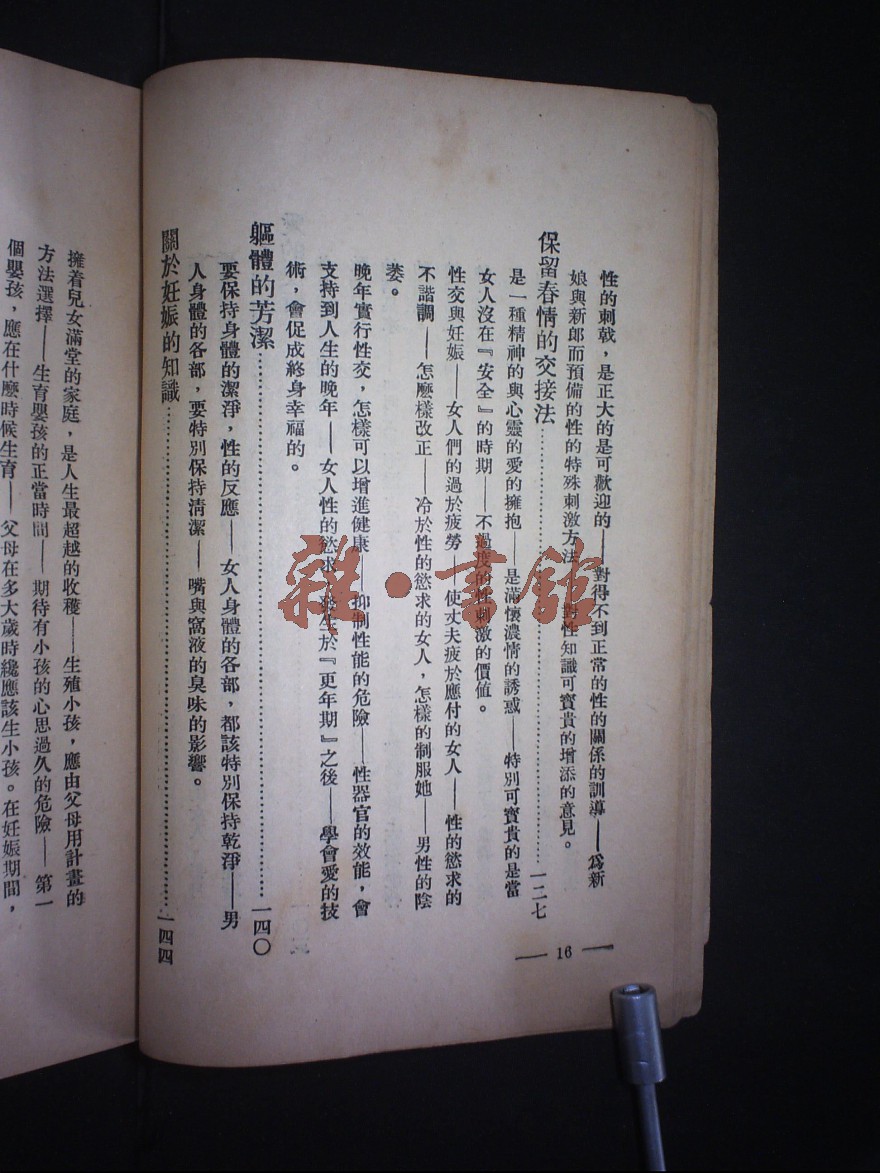 性的刺戟，是正大的是可歡迎的——對得不到正常的性的關係的訓導——爲新
娘與新郎而預備的性的特殊刺激方法——對性知識可寶貴的增添的意見。
保留春情的交接法…………一二七
是一種精神的與心靈的愛的擁抱——是滿懷濃情的誘惑——特別可寶貴的是當
女人沒在『安全』的時期——不過度的性刺激的價值。
性交與妊娠——女人們的過於疲勞——使丈夫疲於應付的女人——性的慾求的
不諧調——怎麽樣改正——冷於性的慾求的女人，怎樣的制服她——男性的陰
萎。
晚年實行性交，怎樣可以增進健康——抑制性能的危險——性器官的效能，會
支持到人生的晚年——女人性的慾求，發生於『更年期』之後——學會愛的技
術，會促成終身幸福的。
軀體的芳潔…………一四〇
要保持身體的潔淨，性的反應——女人身體的各部，都該特別保持乾淨——男
人身體的各部，要特別保持清潔——嘴與窩液的臭味的影響。
關於妊娠的知識…………一四四
— 16 —
擁着兒女滿堂的家庭，是人生最超越的收穫——生殖小孩，應由父母用計畫的
方法選擇——生育嬰孩的正當時間——期待有小孩的心思過久的危險——第一
個嬰孩，應在什麽時候生育——父母在多大歲時纔應該生小孩。在妊娠期間，
雜·書館